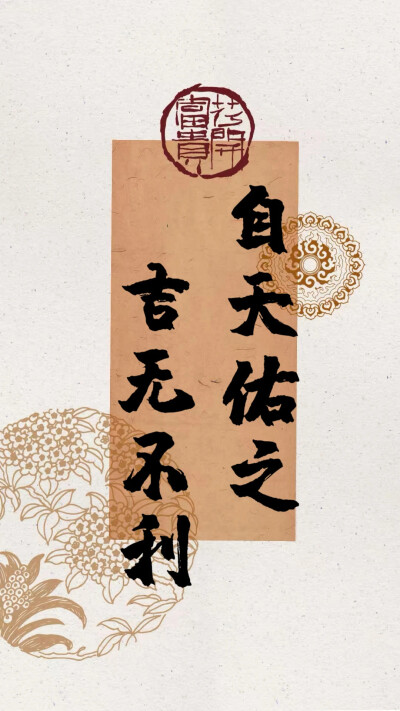 花開
富貴
自天佑之
吉无不利